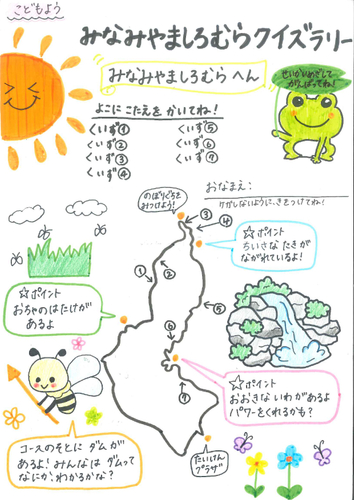 こどもよう
みなみやましろむらクイズラリー
みなみやましろむら へん
せいかいめざして
がんばってね!
よこに こたえを かいてね!
くいず①
くいず②
くいず③
くいず④
くいず⑤
くいず⑥
くいず⑦
おなまえ:
けがしないように、きをつけてね!
のぼりぐちを
みつけよう!
③
④
☆ポイント
ちいさな たきが
ながれているよ!
①
②
☆ポイント
おちゃのはたけが
あるよ
⑤
⑥
☆ポイント
おおきな いわがあるよ
パワーをくれるかも?
⑦
コースのそとに ダムが
あるよ!みんなは ダムって
なにか、わかるかな?
たいけん
プラザ